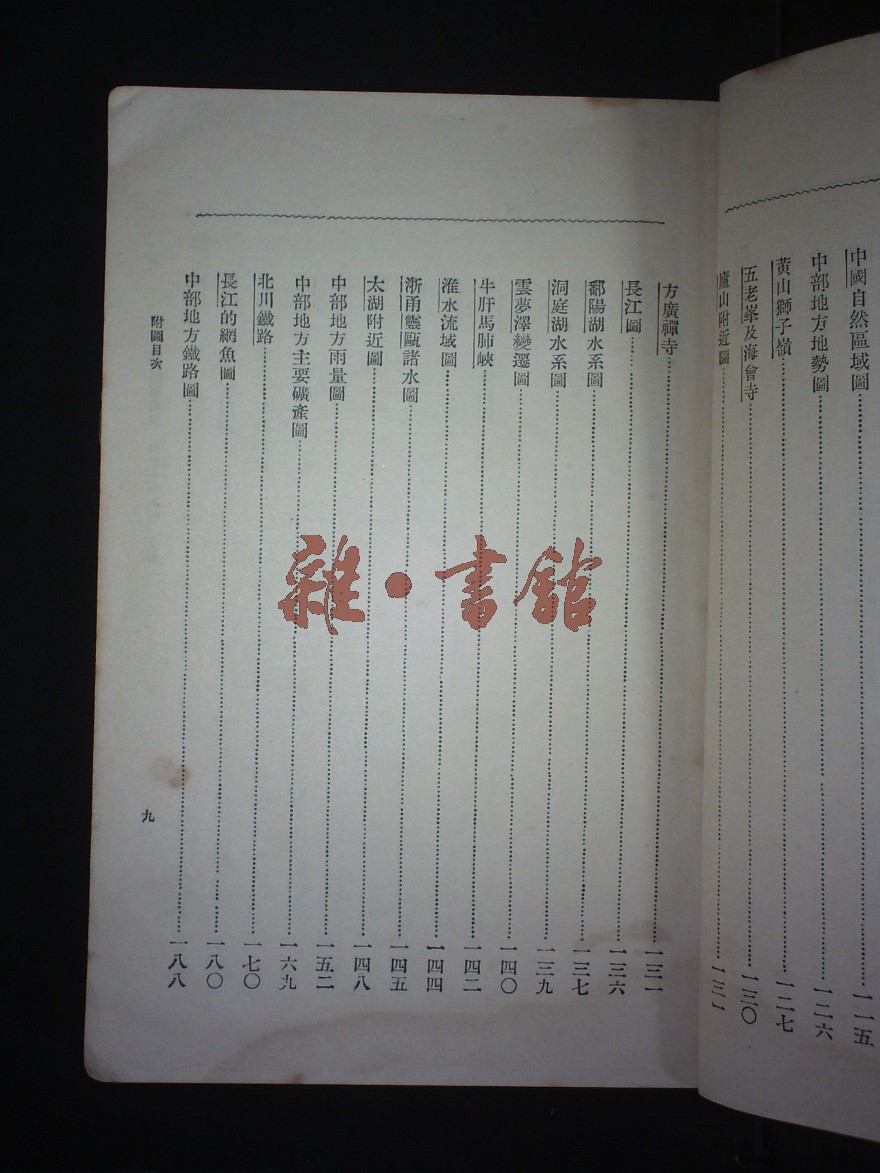 中國自然區域圖……一一五
中部地方地勢圖……一二六
黃山獅子嶺……一二七
五老峯及海會寺……一三〇
廬山附近圖……一三一
方廣禪寺……一三一
長江圖……一三六
鄱陽湖水系圖……一三七
洞庭湖水系圖……一三九
雲夢澤變遷圖……一四〇
牛肝馬肺峽……一四二
淮水流域圖……一四四
浙甬靈甌諸水圖……一四五
太湖附近圖……一四八
中部地方雨量圖……一五二
中部地方主要礦產圖……一六九
北川鐵路……一七〇
長江的網魚圖……一八〇
中部地方鐵路圖……一八八
附圖目次
九
雜·書館